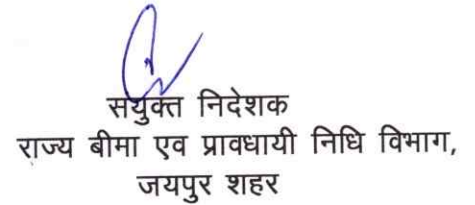 सयुक्त निदेशक
राज्य बीमा एव प्रावधायी निधि विभाग,
जयपुर शहर